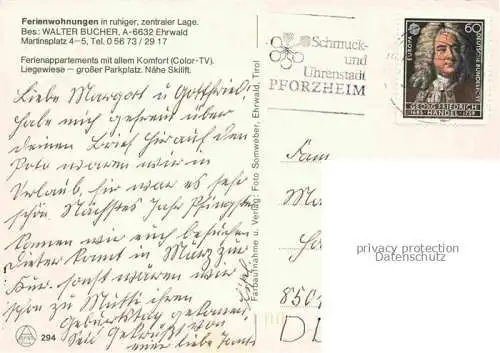 Ferienwohnungen in ruhiger, zentraler Lage.
Bes: WALTER BUCHER, A-6632 Ehrwald
Martinsplatz 4–5, Tel. 0 56 73 / 29 17
Ferienappartements mit allem Komfort (Color-TV).
Liegewiese — großer Parkplatz. Nähe Skilift.
Liebe Margort u. Gottfried!
habe mich gefreut über
deinen Brief hier auf den
Foto waren wir in
Urlaub, hier war es sehr
schön. Nächstes Jahr Pfingsten
kommen wir euch besuchen
Dieter kommt in März zur
Kur. sonst waren wir
schon zu Mutti ihren
Geburtstag gekommen.
Seid Gegrüßt von
eure liebe
294
Farbaufnahme u. Verlag: Foto Somweber, Ehrwald, Tirol
Schmuck-
und
Uhrenstadt
PFORZHEIM
EUROPA
60
DEUTSCHE BUNDESPOST
GEORG FRIEDRICH
HÄNDEL
1685
1759
Fam
850
D-
privacy protection
Datenschutz